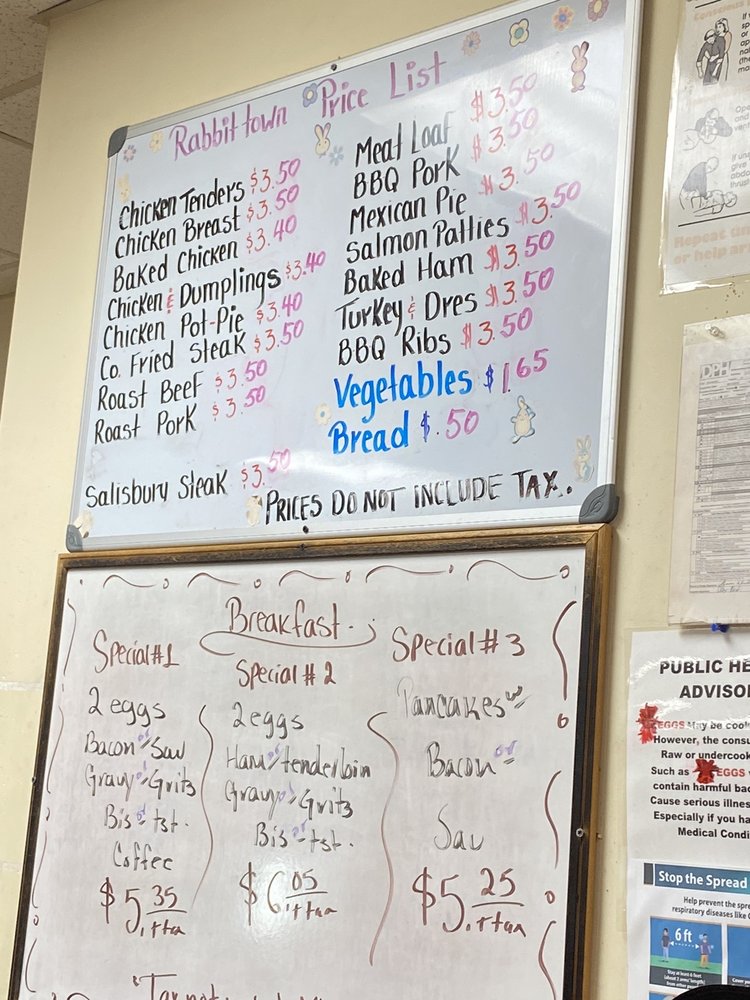 Rabbittown Price List
Chicken Tenders $3.50
Chicken Breast $3.50
Baked Chicken $3.40
Chicken & Dumplings $3.40
Chicken Pot-Pie $3.40
Co. Fried Steak $3.50
Roast Beef $3.50
Roast Pork $3.50
Salisbury Steak $3.50
Meat Loaf $3.50
BBQ Pork $3.50
Mexican Pie $3.50
Salmon Patties $3.50
Baked Ham $3.50
Turkey & Dres $3.50
BBQ Ribs $3.50
Vegetables $1.65
Bread $.50
PRICES DO NOT INCLUDE TAX.
Breakfast
Special #1
2 eggs
Bacon or Sau
Gravy or Grits
Bis or tst.
Coffee
$5.35
+tax
Special #2
2 eggs
Ham or tenderloin
Gravy or Grits
Bis or tst.
$6.05
+tax
Special #3
Pancakes w/
Bacon or
Sau
$5.25
+tax
"Tax not
Repeat
or help
DPH
PUBLIC HE
ADVISO
EGGS May be
However, the consu
Raw or undercook
Such as EGGS
contain harmful bac
Cause serious illnes
Especially if you ha
Medical Condi
Stop the Spread
Help prevent the spre
respiratory diseases like
6 ft
Stay at least 6 feet